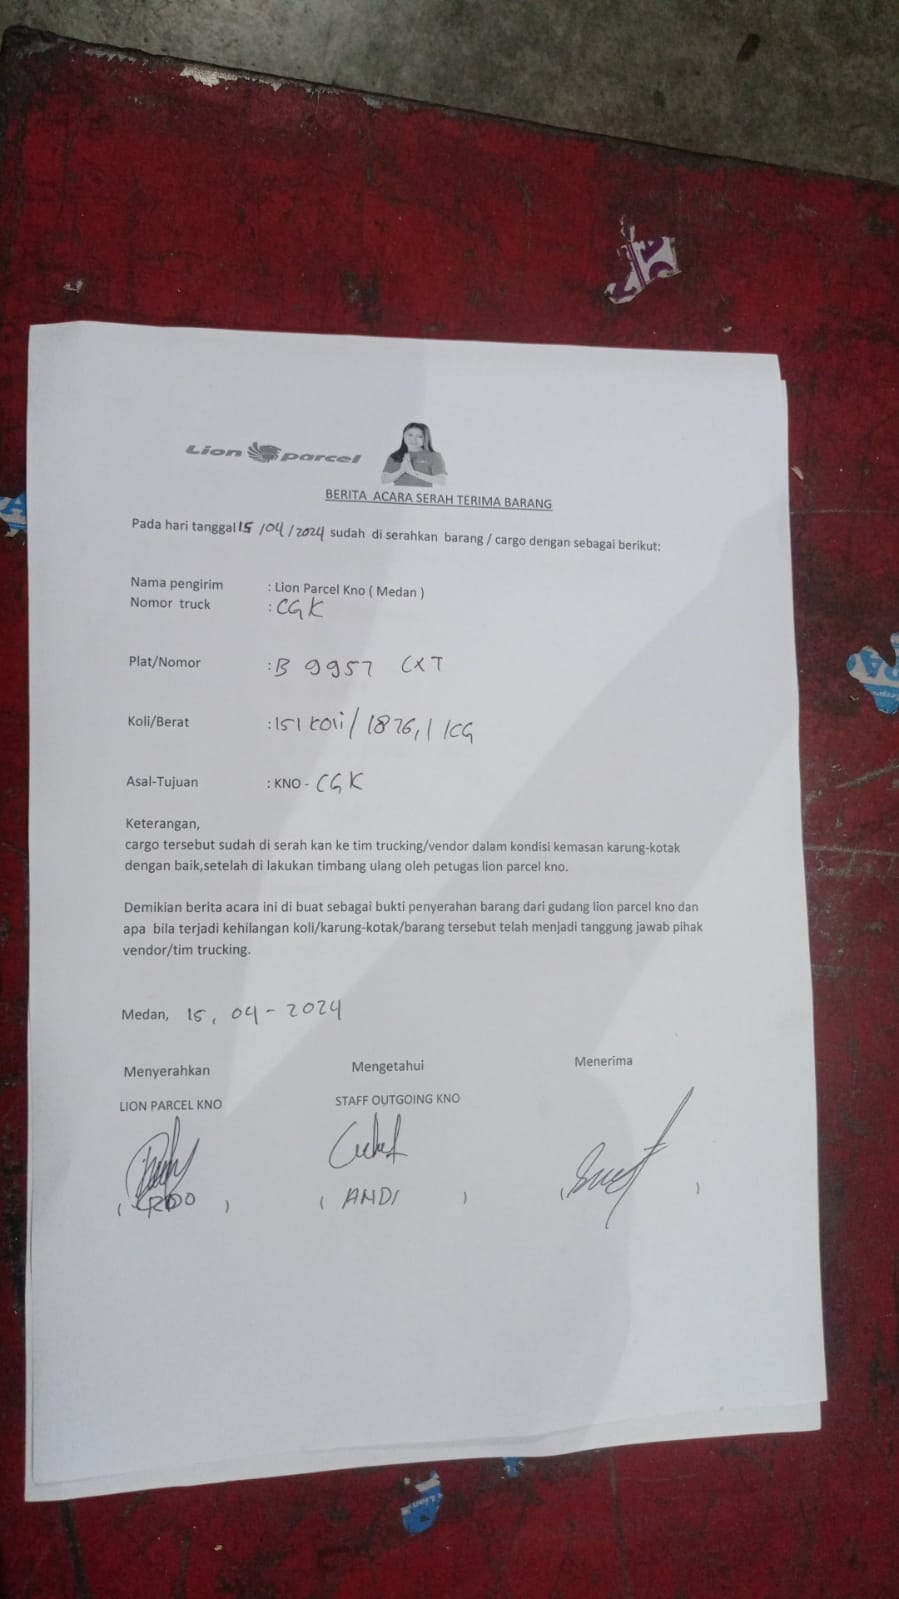 Lion parcel
BERITA ACARA SERAH TERIMA BARANG
Pada hari tanggal 15 /04 / 2024 sudah di serahkan barang / cargo dengan sebagai berikut:
Nama pengirim : Lion Parcel Kno ( Medan )
Nomor truck : CGK
Plat/Nomor : B 9957 CXT
Koli/Berat : 151 koli / 1876,1 KG
Asal-Tujuan : KNO - CGK
Keterangan,
cargo tersebut sudah di serah kan ke tim trucking/vendor dalam kondisi kemasan karung-kotak
dengan baik,setelah di lakukan timbang ulang oleh petugas lion parcel kno.
Demikian berita acara ini di buat sebagai bukti penyerahan barang dari gudang lion parcel kno dan
apa bila terjadi kehilangan koli/karung-kotak/barang tersebut telah menjadi tanggung jawab pihak
vendor/tim trucking.
Medan, 15, 04 - 2024
Menyerahkan Mengetahui Menerima
LION PARCEL KNO STAFF OUTGOING KNO
( ) ( ANDI ) ( )